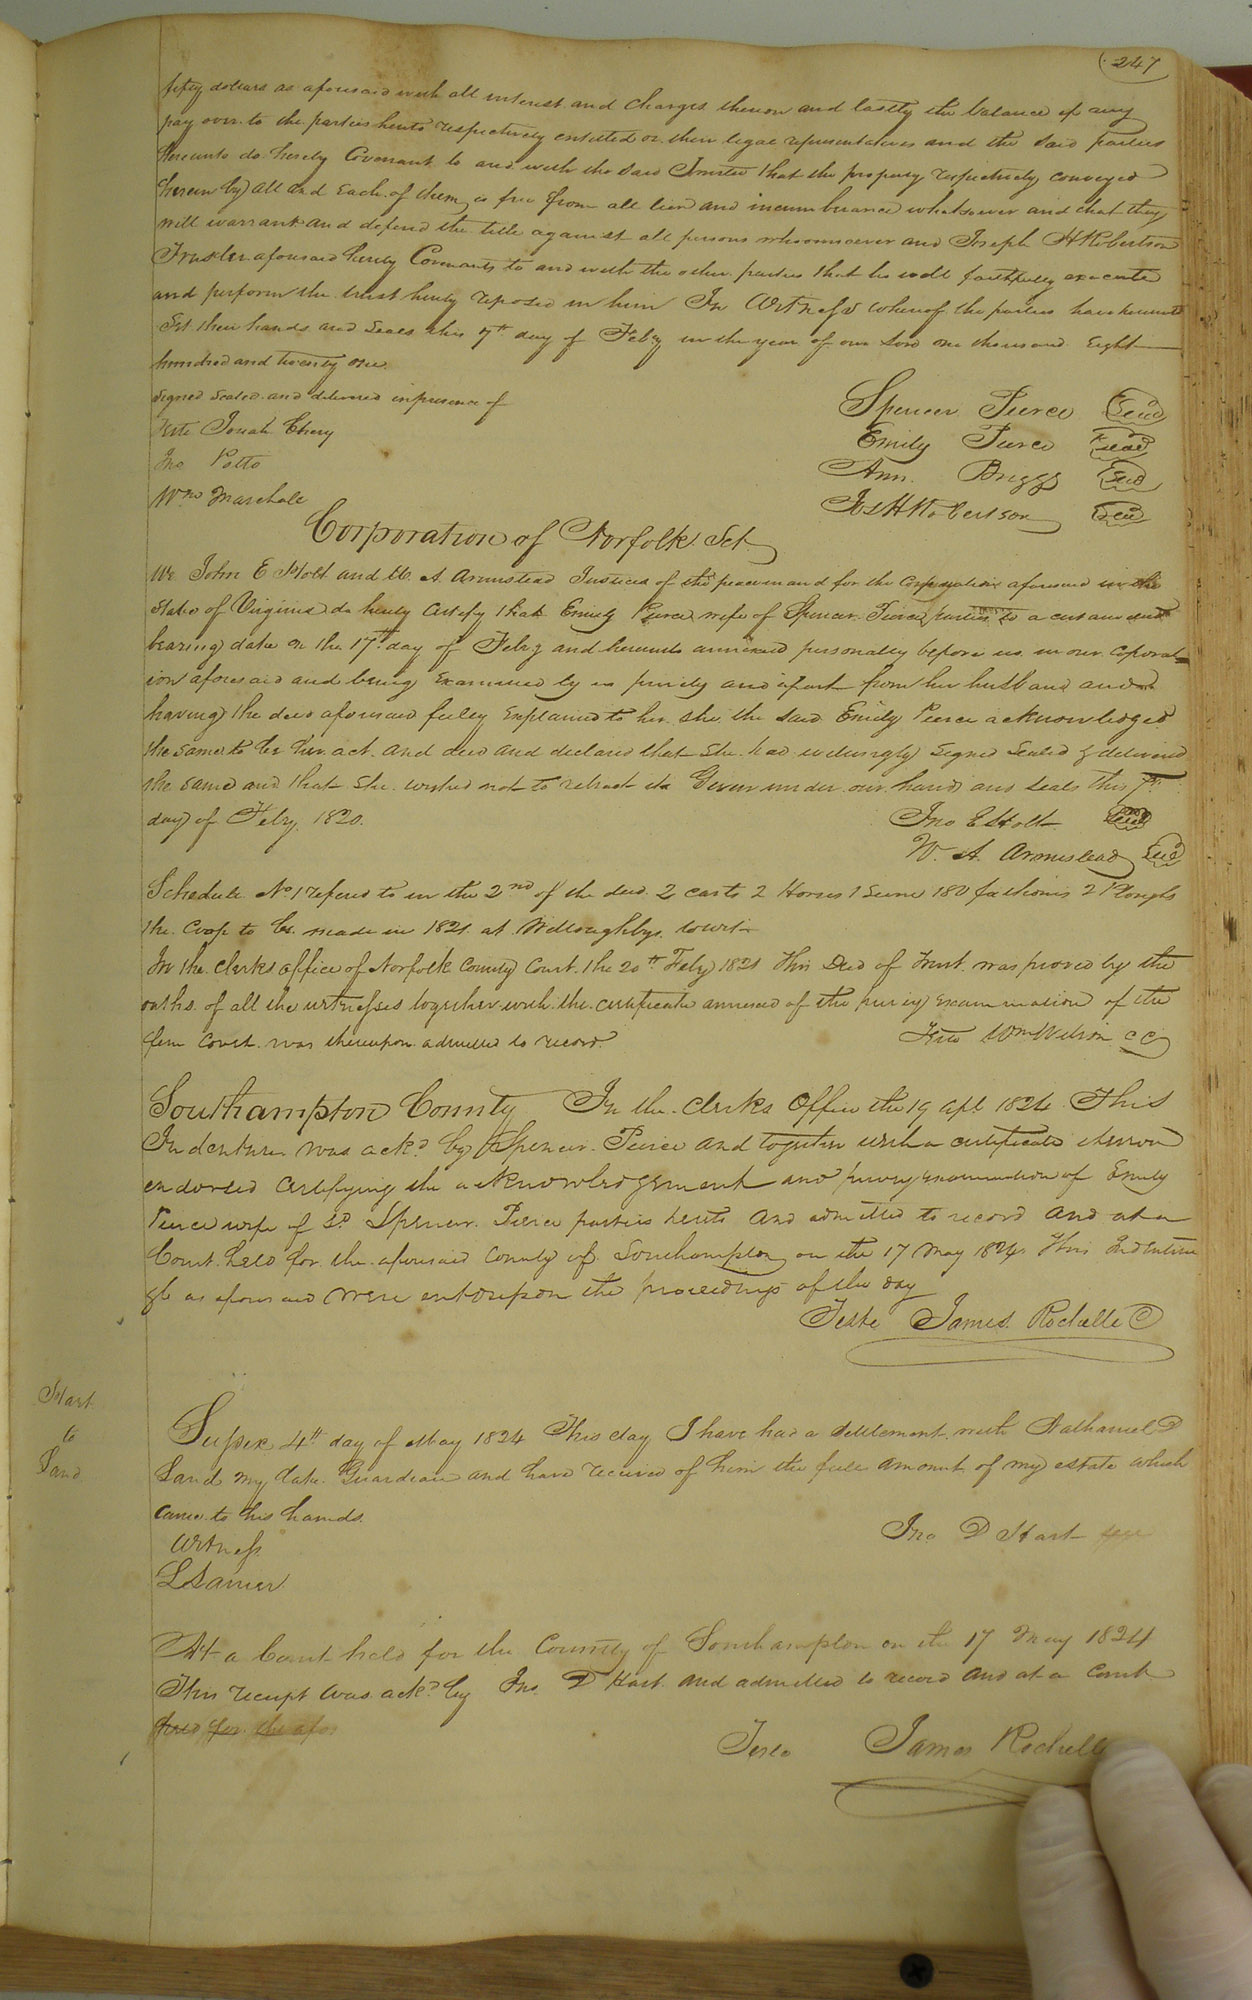 247
fifty dollars as aforesaid with all interest and charges thereon and lastly the balance if any
pay over to the parties hereto respectively entitled or their legal representatives and the said parties
hereunto do hereby Covenant to and with the said Trustee that the property respectively conveyed
herein by all and Each of them is free from all lien and incumberance whatsoever and that they
will warrant and defend the title against all persons whomsoever and Joseph H Robertson
Trustee aforesaid hereby Covenants to and with the other parties that he will faithfully execute
and perform the trust hereby reposed in him In Witness whereof the parties have hereunto
Set their hands and Seals this 7th day of Feby in the year of our Lord one thousand Eight
hundred and twenty one
Signed Sealed and delivered in presence of
Spencer Pierce Seal
Teste Josiah Cherry
Emily Pierce Seal
Jno Potts
Ann Briggs Seal
Wm Marshall
Jos H Robertson Seal
Corporation of Norfolk Sct
We John E Holt and W. A. Armistead Justices of the peace in and for the Corporation aforesaid in the
State of Virginia do hereby Certify that Emily Pierce wife of Spencer Pierce parties to a certain deed
bearing date on the 17th day of Feby and hereunto annexed personally before us in our Corporat
ion aforesaid and being Examined by us privily and apart from her husband and
having the deed aforesaid fully Explained to her she the said Emily Pierce acknowledged
the same to be her act and deed and declared that she had willingly Signed Sealed & delivered
the same and that she wished not to retract it Given under our hands and seals this 7th
day of Feby 1820.
Jno E Holt Seal
W. A. Armistead Seal
Schedule No 1 refered to in the 2nd of the deed 2 carts 2 Horses 1 Seine 180 fathoms 2 Ploughs
the Crop to be made in 1821 at Willoughbys
In the Clerks office of Norfolk County Court the 20th Feby 1821 This Deed of Trust was proved by the
oaths of all the witnesses together with the certificate annexed of the privy examination of the
fem Covert was thereupon admitted to record
Teste Wm Wilson CC
Southampton County In the Clerks Office the 19 Apl 1824 This
Indenture was ackd by Spencer Pierce and together with a certificate thereon
endorsed Certifying the acknowledgement and privy examination of Emily
Pierce wife of sd Spencer Pierce parties hereto and admitted to record and at a
Court held for the aforesaid County of Southampton on the 17 May 1824 This Indenture
&c as aforesaid were entered upon the proceedings of the day
Teste James Rochelle C
Hart
to
Land
Sussex 4th day of May 1824 This day I have had a Settlement with Nathaniel D
Land my late Guardian and have received of him the full amount of my estate which
came to his hands
Jno D Hart
Witness
L Lanier
At a Court held for the County of Southampton on the 17 May 1824
This receipt was ackd by Jno D Hart and admitted to record and at a Court
held for the afor
Teste James Rochelle